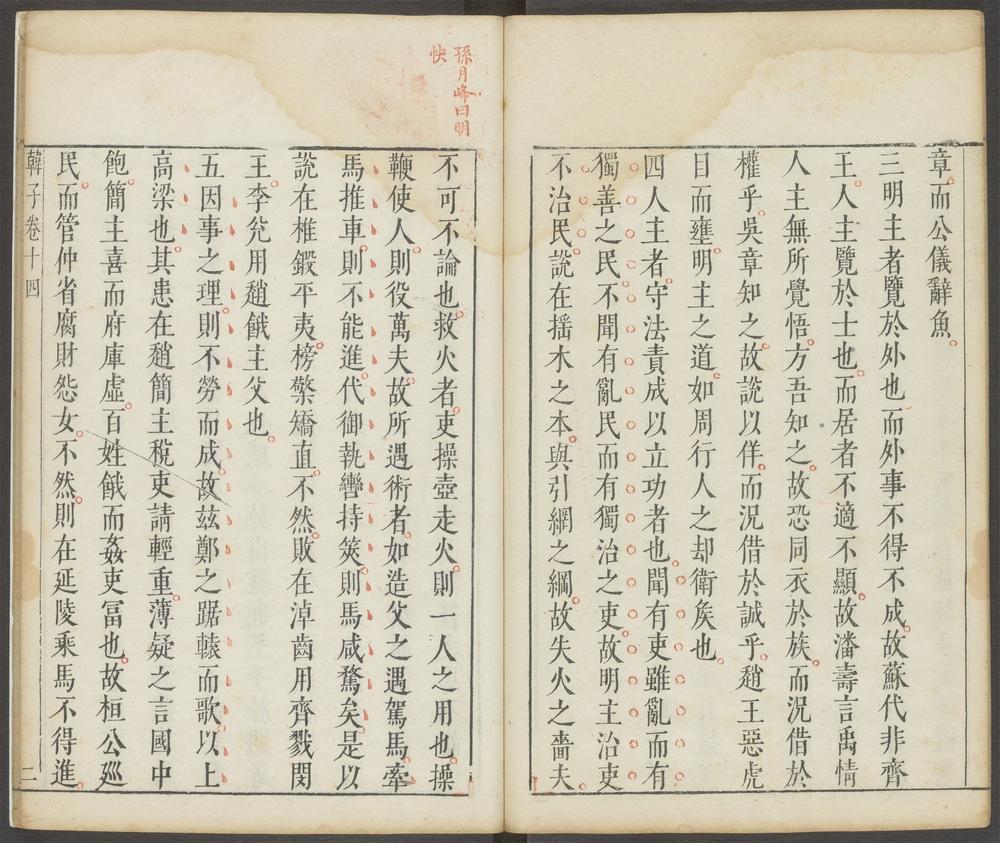 章而公儀辭魚
三明主者覽於外也而外事不得不成故蘇代非齊
王人主覽於士也而居者不適不顯故潘壽言禹情
人主無所覺悟方吾知之故恐同衣於族而況借於
權乎吳章知之故説以佯而況借於誠乎趙王惡虎
目而壅明主之道如周行人之却衛矦也
四人主者守法責成以立功者也聞有吏雖亂而有
獨善之民不聞有亂民而有獨治之吏故明主治吏
不治民説在揺木之本與引網之綱故失火之嗇夫
孫月峰曰明
快
不可不論也救火者吏操壺走火則一人之用也操
鞭使人則役萬夫故所遇術者如造父之遇駕馬牽
馬推車則不能進代御執轡持筴則馬咸騖矣是以
説在椎鍛平夷榜檠矯直不然敗在淖齒用齊戮閔
王李兊用趙餓主父也
五因事之理則不勞而成故茲鄭之踞轅而歌以上
高梁也其患在趙簡主稅吏請輕重薄疑之言國中
飽簡主喜而府庫虛百姓餓而姦吏冨也故桓公廵
民而管仲省腐財怨女不然則在延陵乘馬不得進
韓子卷十四
二